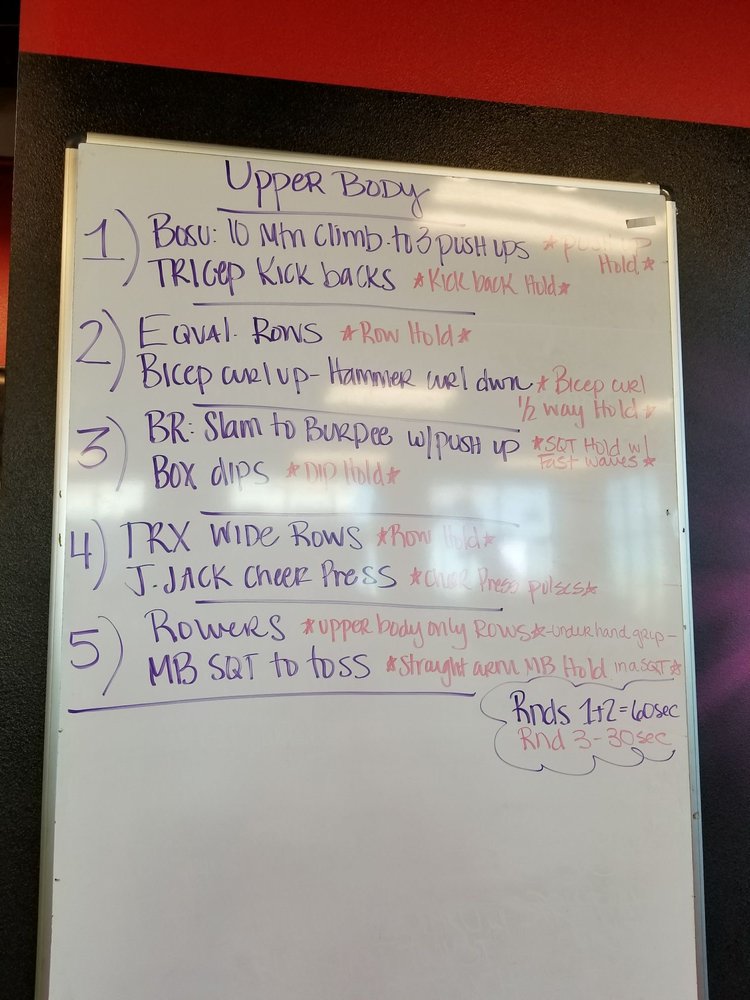 Upper Body
1) Bosu: 10 Mtn Climb to 3 push ups *push up
Hold*
Tricep Kick backs *Kick back Hold*
2) Equal Rows *Row Hold*
Bicep curl up - Hammer curl dwn *Bicep curl
1/2 way Hold*
3) BR: Slam to Burpee w/push up *SQT Hold w/
Fast waves*
Box dips *Dip Hold*
4) TRX Wide Rows *Row Hold*
J.JACK Cheer Press *Cheer Press pulses*
5) Rowers *upper body only rows* -underhand grip-
MB SQT to toss *straight arm MB Hold in a SQT*
Rnds 1+2=60sec
Rnd 3-30sec